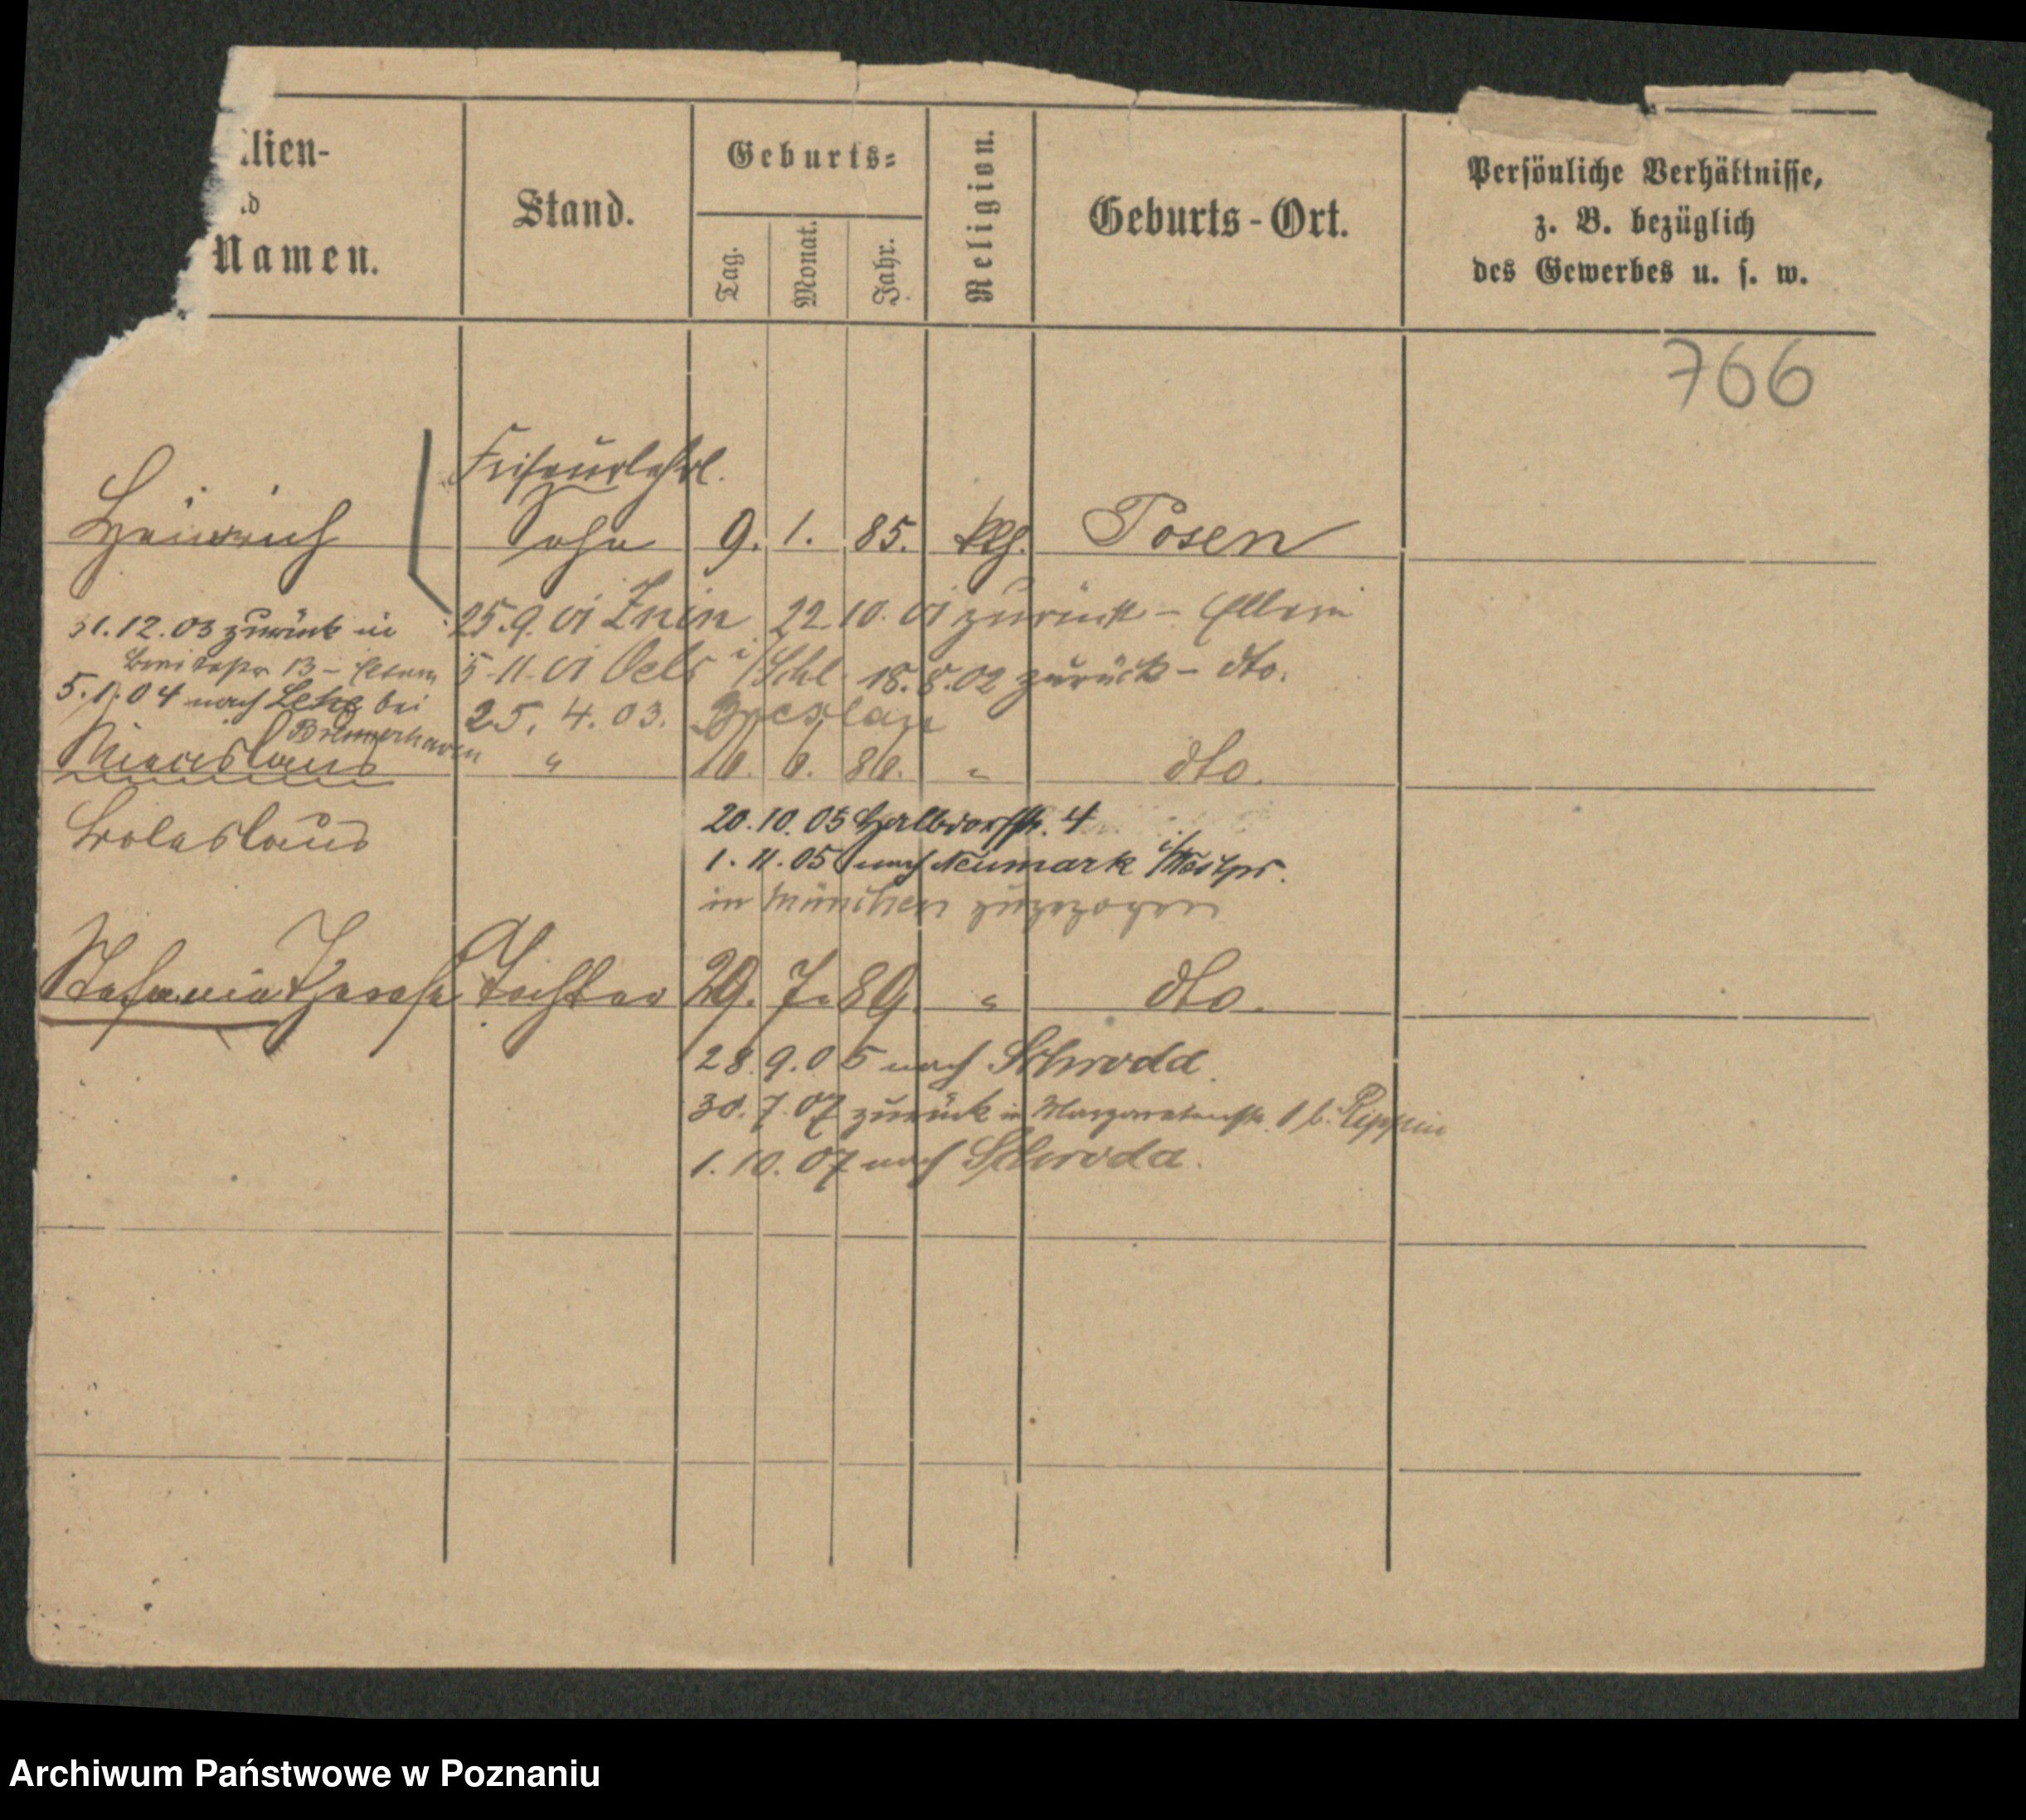 lien-
d
Namen.
Stand.
Geburts-
Tag.
Monat.
Jahr.
Religion.
Geburts-Ort.
Persönliche Verhältnisse,
z. B. bezüglich
des Gewerbes u. s. w.
766
Friseurlehrl.
Heinrich Sohn 9. 1. 85. Posen
31.12.03 zurück in
13 - Eltern
5.1.04 nach Lehe bei
Bremerhaven
25.9.01 Znin 22.10.01 zurück - Eltern
5.11.01 Oels i/Schl. 18.8.02 zurück - dto.
25. 4. 03. Breslau
Miecislaus " 16. 6. 86. " dto.
Boleslaus
20.10.05 Halbdorfstr. 4
1.11.05 nach Neumark i/Westpr.
in München zugezogen
Stefania Therese Tochter 29. 7. 89. " dto.
28.9.05 nach Schroda.
30.7.07 zurück in Margaretenstr. b. Pippin
1.10.07 nach Schroda.
Archiwum Państwowe w Poznaniu